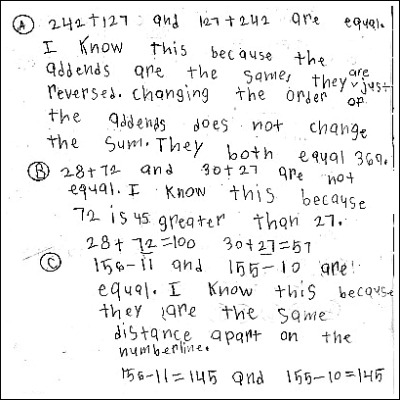 Ⓐ 242+127 and 127+242 are equal.
I know this because the
addends are the same, they are just
reversed. Changing the order of
the addends does not change
the sum. They both equal 369.
Ⓑ 28+72 and 30+27 are not
equal. I know this because
72 is 45 greater than 27.
28+72=100 30+27=57
Ⓒ 156-11 and 155-10 are
equal. I know this because
they are the same
distance apart on the
numberline.
156-11=145 and 155-10=145